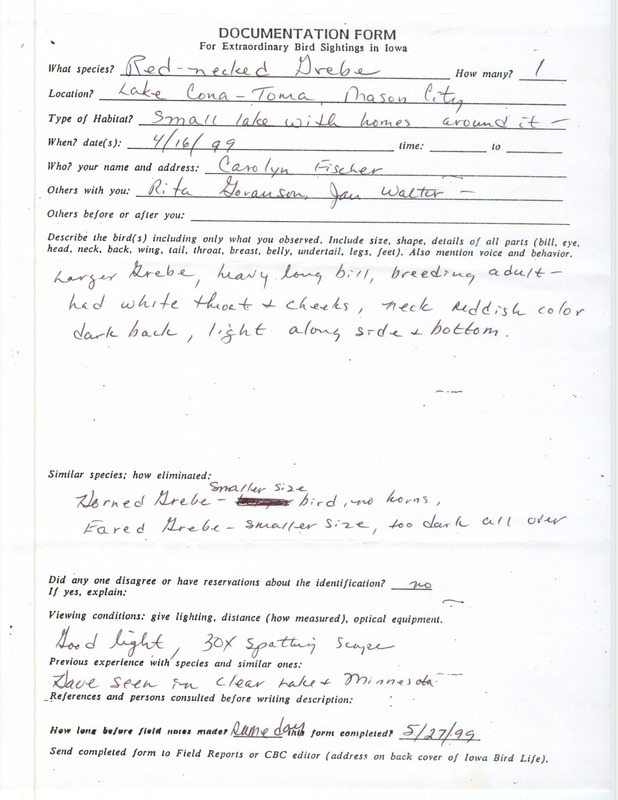 DOCUMENTATION FORM
For Extraordinary Bird Sightings in Iowa
What species? Red-necked Grebe How many? 1
Location? Lake Cona-Toma, Mason City
Type of Habitat? Small lake with homes around it -
When? date(s): 4/16/99 time: to
Who? your name and address: Carolyn Fischer
Others with you: Rita Goranson, Jan Walter -
Others before or after you:
Describe the bird(s) including only what you observed. Include size, shape, details of all parts (bill, eye,
head, neck, back, wing, tail, throat, breast, belly, undertail, legs, feet). Also mention voice and behavior.
Larger Grebe, heavy long bill, breeding adult -
had white throat + cheeks, neck reddish color
dark back, light along side + bottom.
Similar species; how eliminated:
Smaller size
Horned Grebe - bird, no horns,
Eared Grebe - smaller size, too dark all over
Did any one disagree or have reservations about the identification? no
If yes, explain:
Viewing conditions: give lighting, distance (how measured), optical equipment.
Good light, 30X spotting scope
Previous experience with species and similar ones:
Have seen in Clear Lake + Minnesota
References and persons consulted before writing description:
How long before field notes made? Same day this form completed? 5/27/99
Send completed form to Field Reports or CBC editor (address on back cover of Iowa Bird Life).